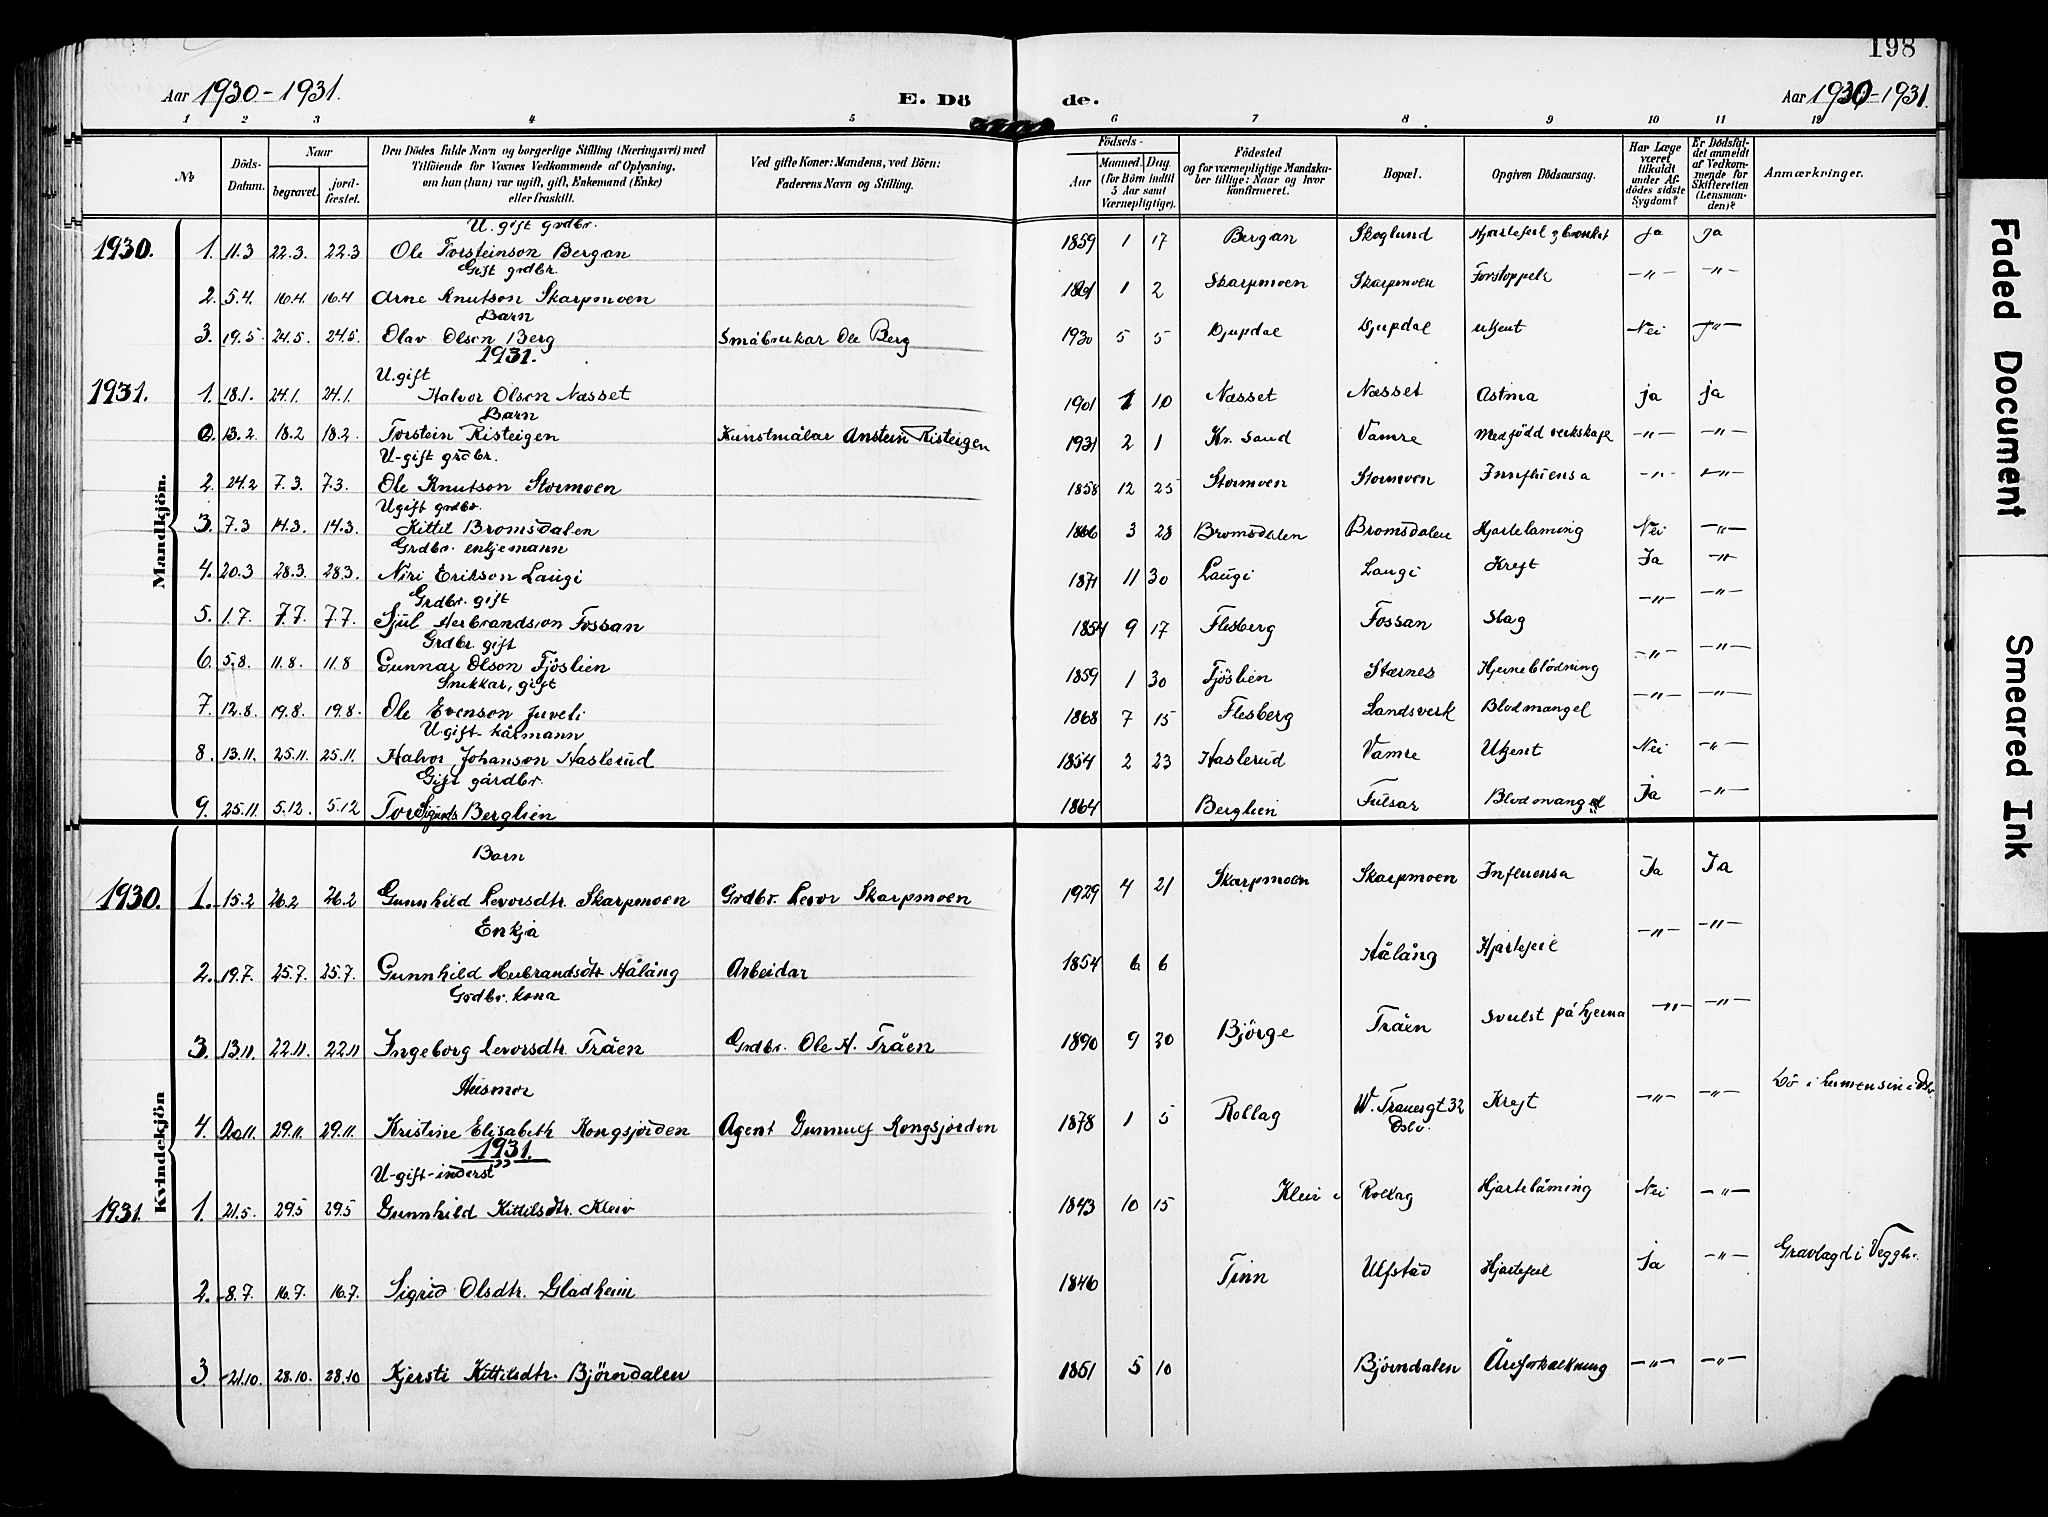 198
Aar 1930-1931.
E. Dö de.
Aar 1930-1931.
1 2 3 4 5 6 7 8 9 10 11 12
No
Döds-Datum.
Naar
begravet.
jord-fæstet.
Den Dödes fulde Navn og borgerlige Stilling (Næringsvei) med
Tilföiende for Voxnes Vedkommende af Oplysning,
om han (hun) var ugift, gift, Enkemand (Enke)
eller fraskilt.
Ved gifte Koner: Mandens, ved Börn:
Faderens Navn og Stilling.
Födsels-
Aar
Maaned. Dag.
(for Börn indtil
5 Aar samt
Værnepligtige).
Födested
og for værnepligtige Mandskaber tillige: Naar og hvor
konfirmeret.
Bopæl.
Opgiven Dödsaarsag.
Har Læge
været
tilkaldt
under Afdödes sidste
Sygdom?
Er Dödsfaldet anmeldt
af Vedkommende for
Skifteretten
(Lensmanden)?
Anmærkninger.
Mandkjön.
U. gift grdbr.
1930. 1. 11.3 22.3. 22.3 Ole Torsteinson Bergan 1859 1 17 Bergan Skoglund Hjartefeil og bronkit ja ja
Gift grdbr.
2. 5.4. 16.4. 16.4 Arne Knutson Skarpmoen 1861 1 2 Skarpmoen Skarpmoen Forstoppels -"- -"-
Barn
3. 19.5 24.5. 24.5. Olav Olsen Berg Småbrukar Ole Berg 1930 5 5 Djupdal Djupdal ukjent Nei -"-
1931.
U.gift
1931. 1. 18.1. 24.1. 24.1. Halvor Olsen Næsset 1901 1 10 Næsset Næsset Astma ja ja
Barn
2. 13.2. 18.2 18.2. Torstein Risteigen Kunstmålar Anstein Risteigen 1931 2 1 Kr. sand Vamre Medfödd verkskape -"- -"-
U-gift grdbr.
2. 24.2 7.3. 7.3. Ole Knutson Stormoen 1858 12 25 Stormoen Stormoen Innfluensa -"- -"-
Ugift grdbr.
3. 7.3 14.3. 14.3. Kittil Bromsdalen 1866 3 28 Bromsdalen Bromsdalen Hjartelaming Nei -"-
Grdbr. enkjemann
4. 20.3 28.3. 28.3. Niri Erikson Laugi 1871 11 30 Laugi Laugi Kreft Ja -"-
Grdbr. gift
5. 1.7. 7.7. 7.7. Sjul Herbrandson Fossan 1854 9 17 Flesberg Fossan Slag -"- -"-
Grdbr. gift
6. 5.8. 11.8. 11.8 Gunnar Olson Fjöslien 1859 1 30 Fjöslien Stærnes Hjerneblödning -"- -"-
Snekkar, gift
7. 12.8. 19.8. 19.8. Ole Evenson Juveli 1868 7 15 Flesberg Landsverk Blodmangel -"- -"-
Ugift kårmann
8. 13.11. 25.11. 25.11. Halvor Johanson Haslerud 1854 2 23 Haslerud Vamre Ukjent Nei -"-
Gift gårdbr.
9. 25.11. 5.12. 5.12 Tor Sigurds Berglien 1864 Berglien Fulsar Blodmangel Ja -"-
Kvindekjön
Barn
1930. 1. 15.2 26.2 26.2 Gunnhild Levorsdtr. Skarpmoen Grdbr. Levor Skarpmoen 1929 4 21 Skarpmoen Skarpmoen Influensa Ja Ja
Enkja
2. 19.7. 25.7. 25.7. Gunnhild Herbrandsdtr Hålång Arbeidar 1854 6 6 Hålång Hjartefeil -"- -"-
Grdbr. kona
3. 13.11. 22.11. 22.11 Ingeborg Levorsdtr. Tråen Grdbr. Ole H. Tråen 1890 9 30 Björge Tråen Svulst på hjerna -"- -"-
Husmor
4. 20.11. 29.11. 29.11. Kristine Elisabeth Kongsjorden Agent Gunnulf Kongsjorden 1878 1 5 Rollag W. Tranesgt 32 Oslo. Kreft -"- -"- Dö i
1931.
U-gift-inderst"
1931. 1. 21.5. 29.5 29.5 Gunnhild Kittilsdtr. Kleiv 1843 10 15 Kleiv i Rollag Hjartelåming Nei -"-
2. 8.7. 16.7. 16.7. Sigrid Olsdtr. Gladheim 1846 Tinn Ulfstad Hjartefeil Ja -"- Gravlagd i Veggli.
3. 21.10. 28.10. 28.10 Kjersti Kittilsdtr. Björndalen 1851 5 10 Björndalen Åreforkalkning -"- -"-
Faded Document
Smeared Ink